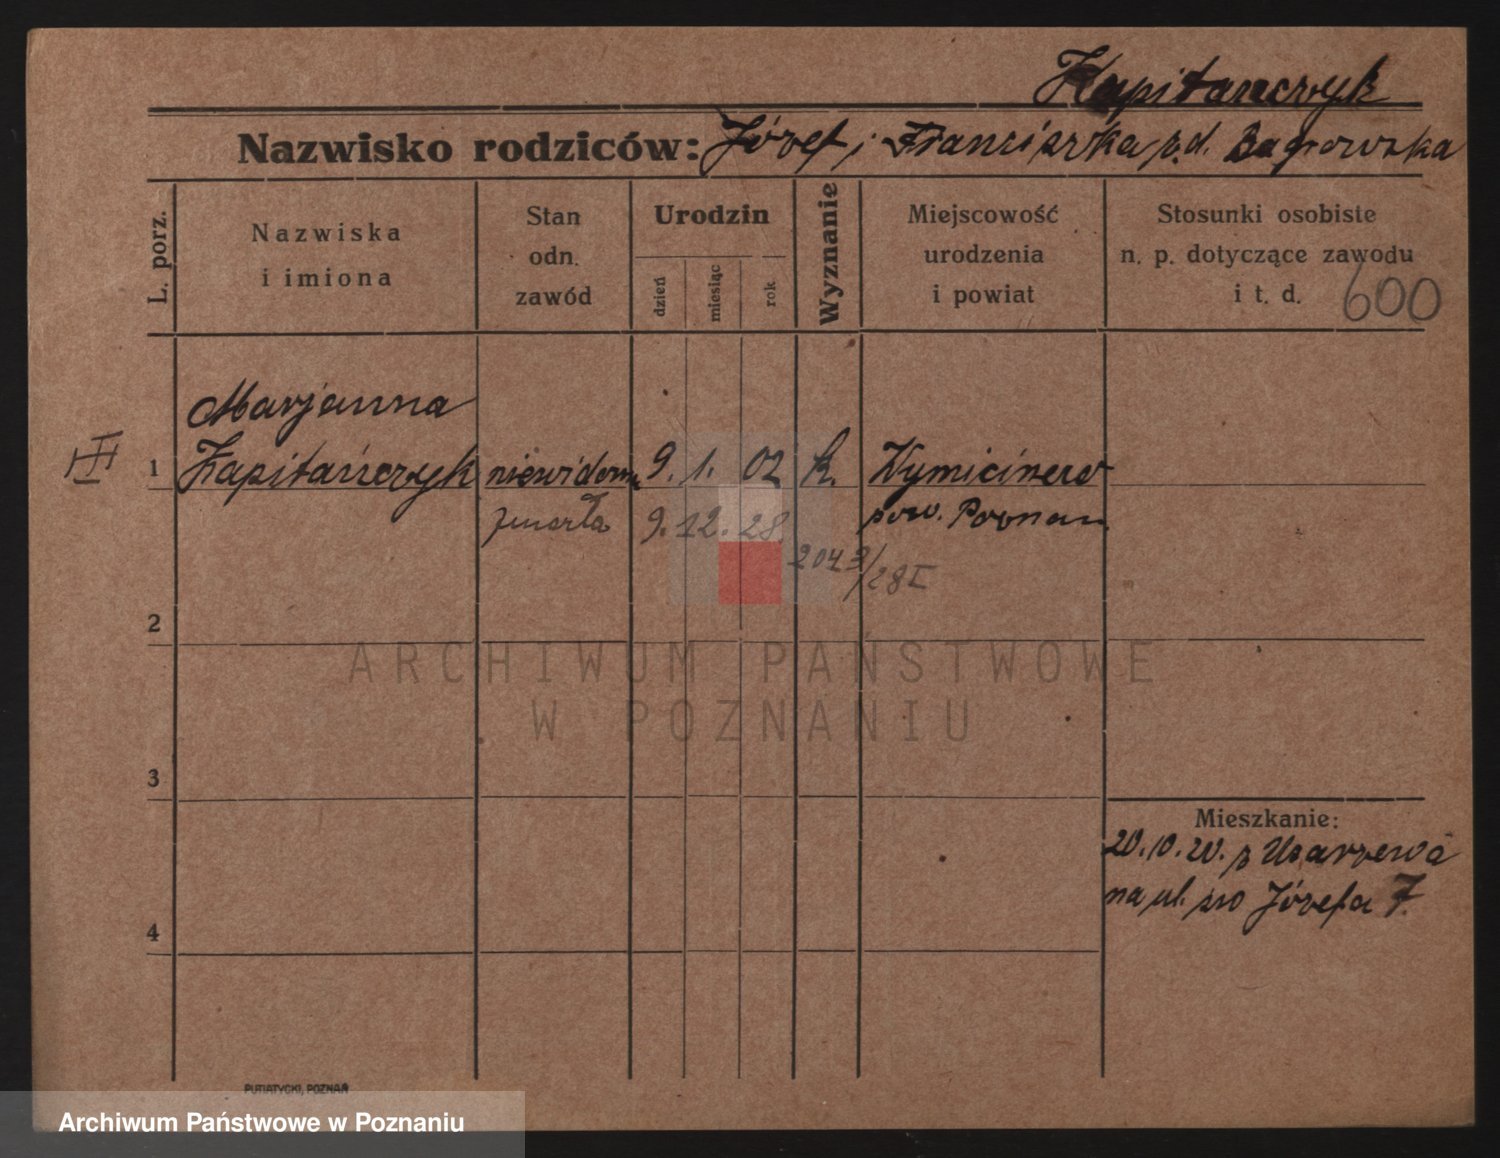 Kapitańczyk
Nazwisko rodziców: Józef i Franciszka p.d. Bagrowska
L. porz.
Nazwiska
i imiona
Stan
odn.
zawód
Urodzin
dzień
miesiąc
rok
Wyznanie
Miejscowość
urodzenia
i powiat
Stosunki osobiste
n. p. dotyczące zawodu
i t. d.
600
Marjanna
III 1 Kapitańczyk niewidoma 9. 1. 02 k.
zmarła 9. 12. 28 pow. Poznań
2043/28 I
2
3
4
Mieszkanie:
20.10.20. z Uzarzewa
na ul. św Józefa 7.
ARCHIWUM PAŃSTWOWE
W POZNANIU
PUTIATYCKI, POZNAŃ
Archiwum Państwowe w Poznaniu